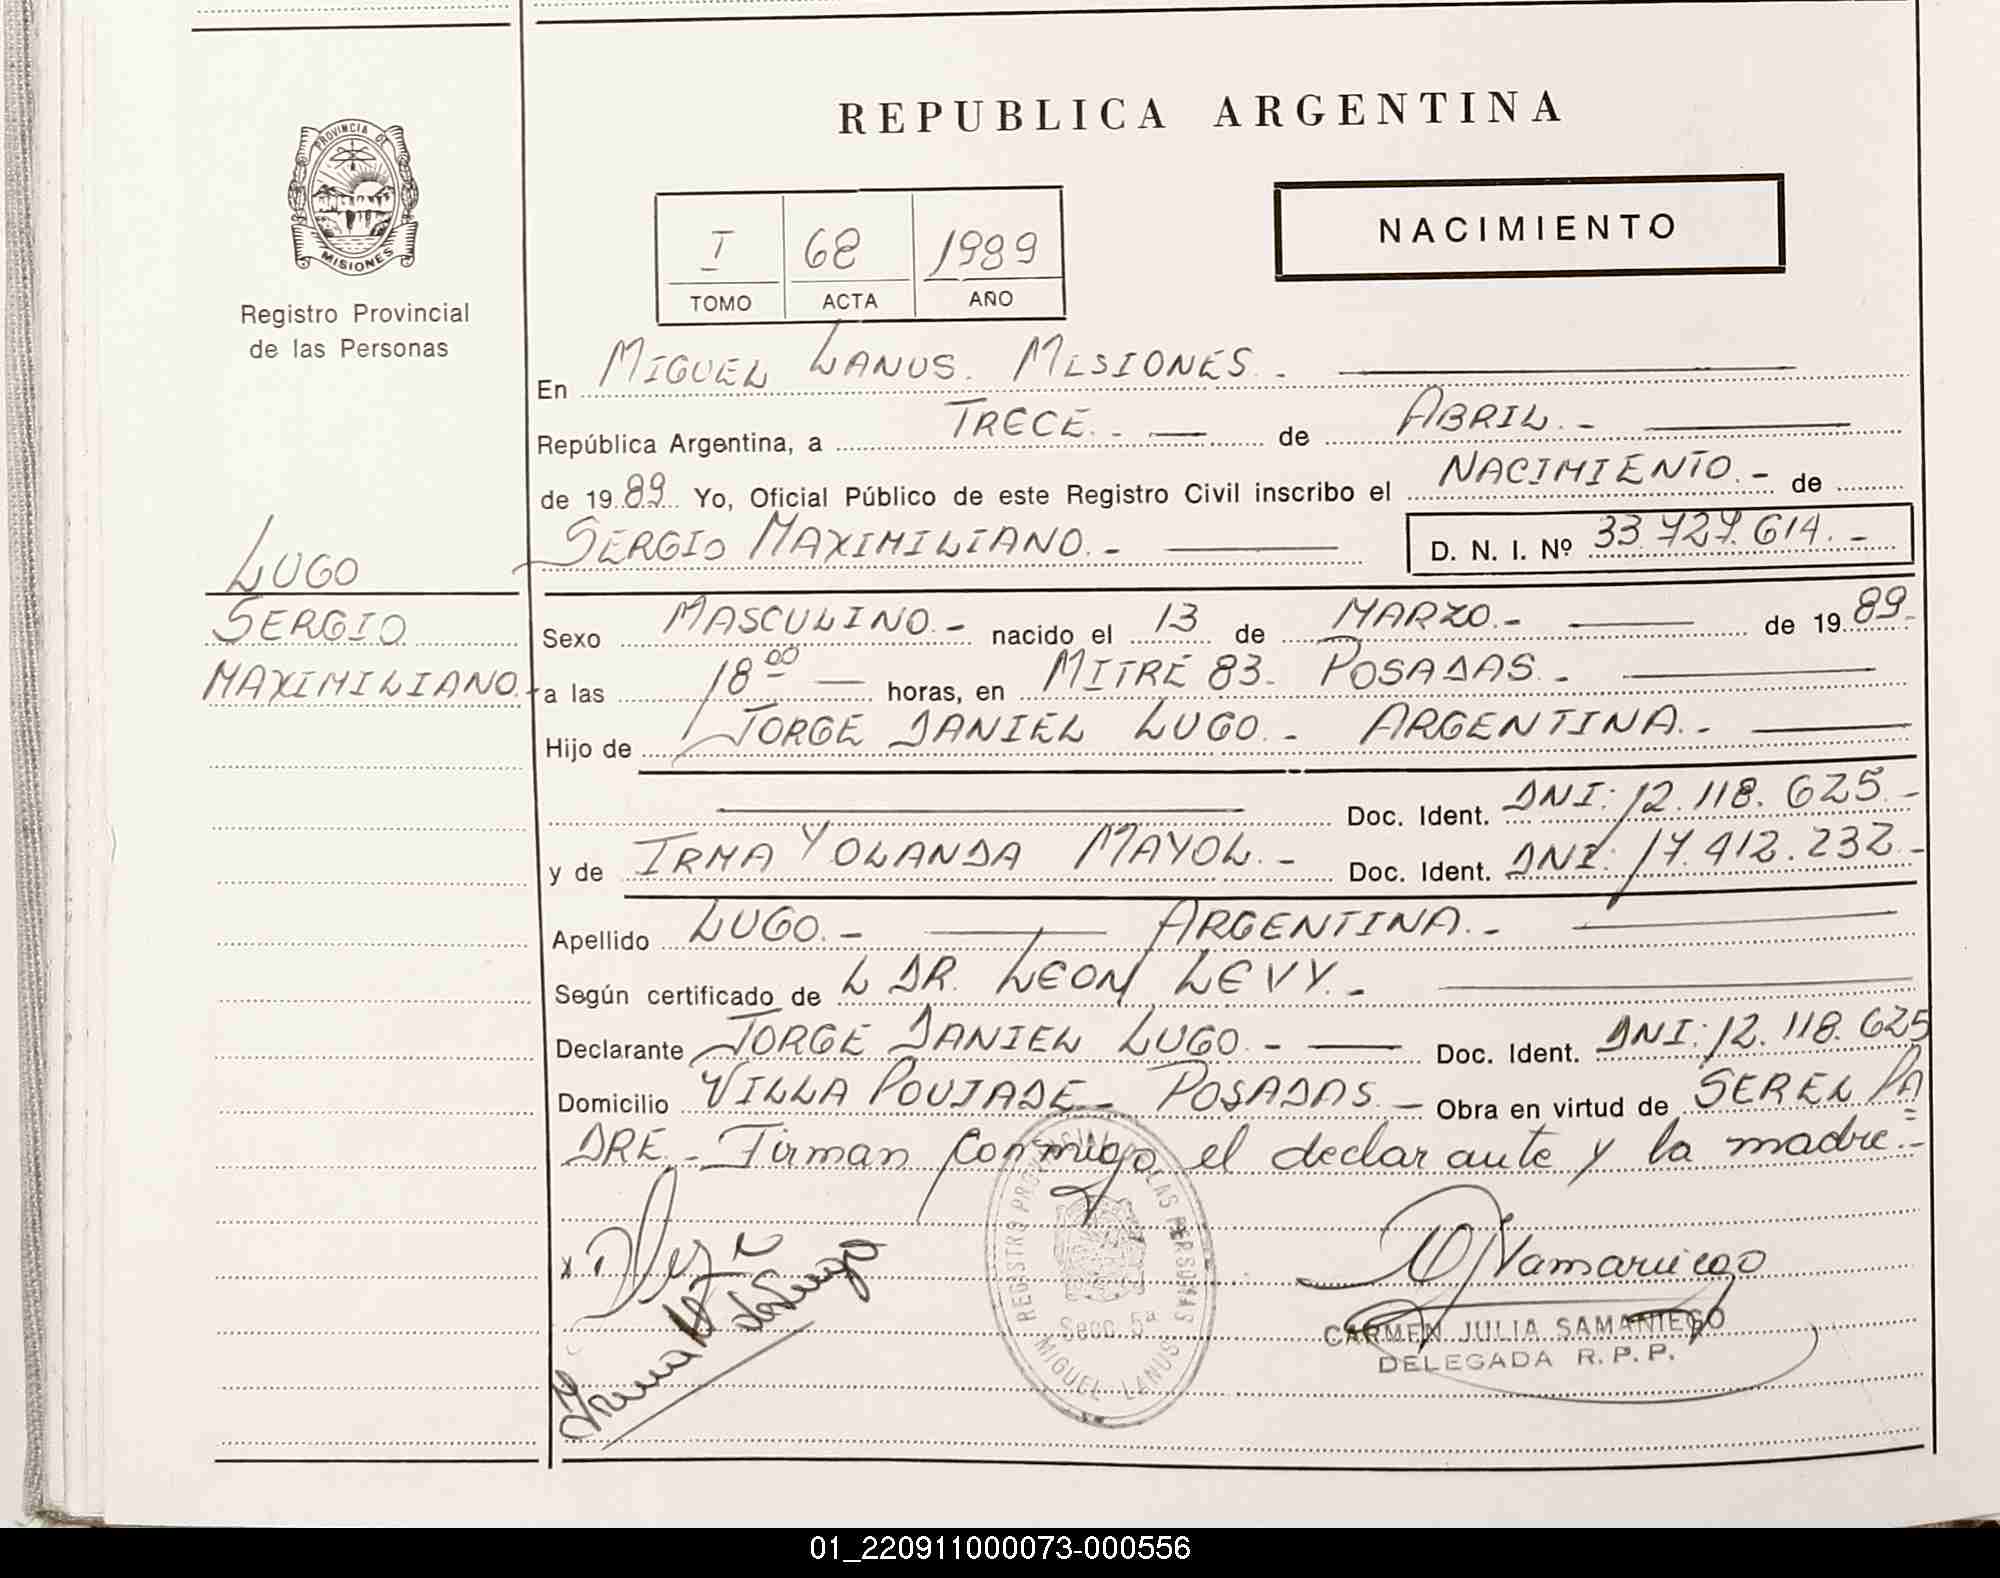 REPUBLICA ARGENTINA
PROVINCIA DE
MISIONES
Registro Provincial
de las Personas
NACIMIENTO
I 68 1989
TOMO ACTA AÑO
En MIGUEL LANUS. MISIONES. -
República Argentina, a TRECE. - de ABRIL. -
de 1989 Yo, Oficial Público de este Registro Civil inscribo el NACIMIENTO. - de
SERGIO MAXIMILIANO. - D. N. I. Nº 33.727.614. -
LUGO
SERGIO
MAXIMILIANO. -
Sexo MASCULINO. - nacido el 13 de MARZO. - de 1989-
a las 18 00 horas, en MITRE 83- POSADAS. -
Hijo de JORGE DANIEL LUGO. - ARGENTINA. -
Doc. Ident. DNI: 12.118.625. -
y de IRMA YOLANDA MAYOL. - Doc. Ident. DNI: 17.412.232 -
Apellido LUGO. - ARGENTINA. -
Según certificado de L DR. LEON LEVY. -
Declarante JORGE DANIEL LUGO. - Doc. Ident. DNI: 12.118.625
Domicilio VILLA POUJADE - POSADAS. - Obra en virtud de SER EL PA=
DRE. - Firman conmigo el declarante y la madre. -
REGISTRO PROVINCIAL DE LAS PERSONAS
Secc 5ª
MIGUEL LANUS
CARMEN JULIA SAMANIEGO
DELEGADA R. P. P.
01_220911000073-000556